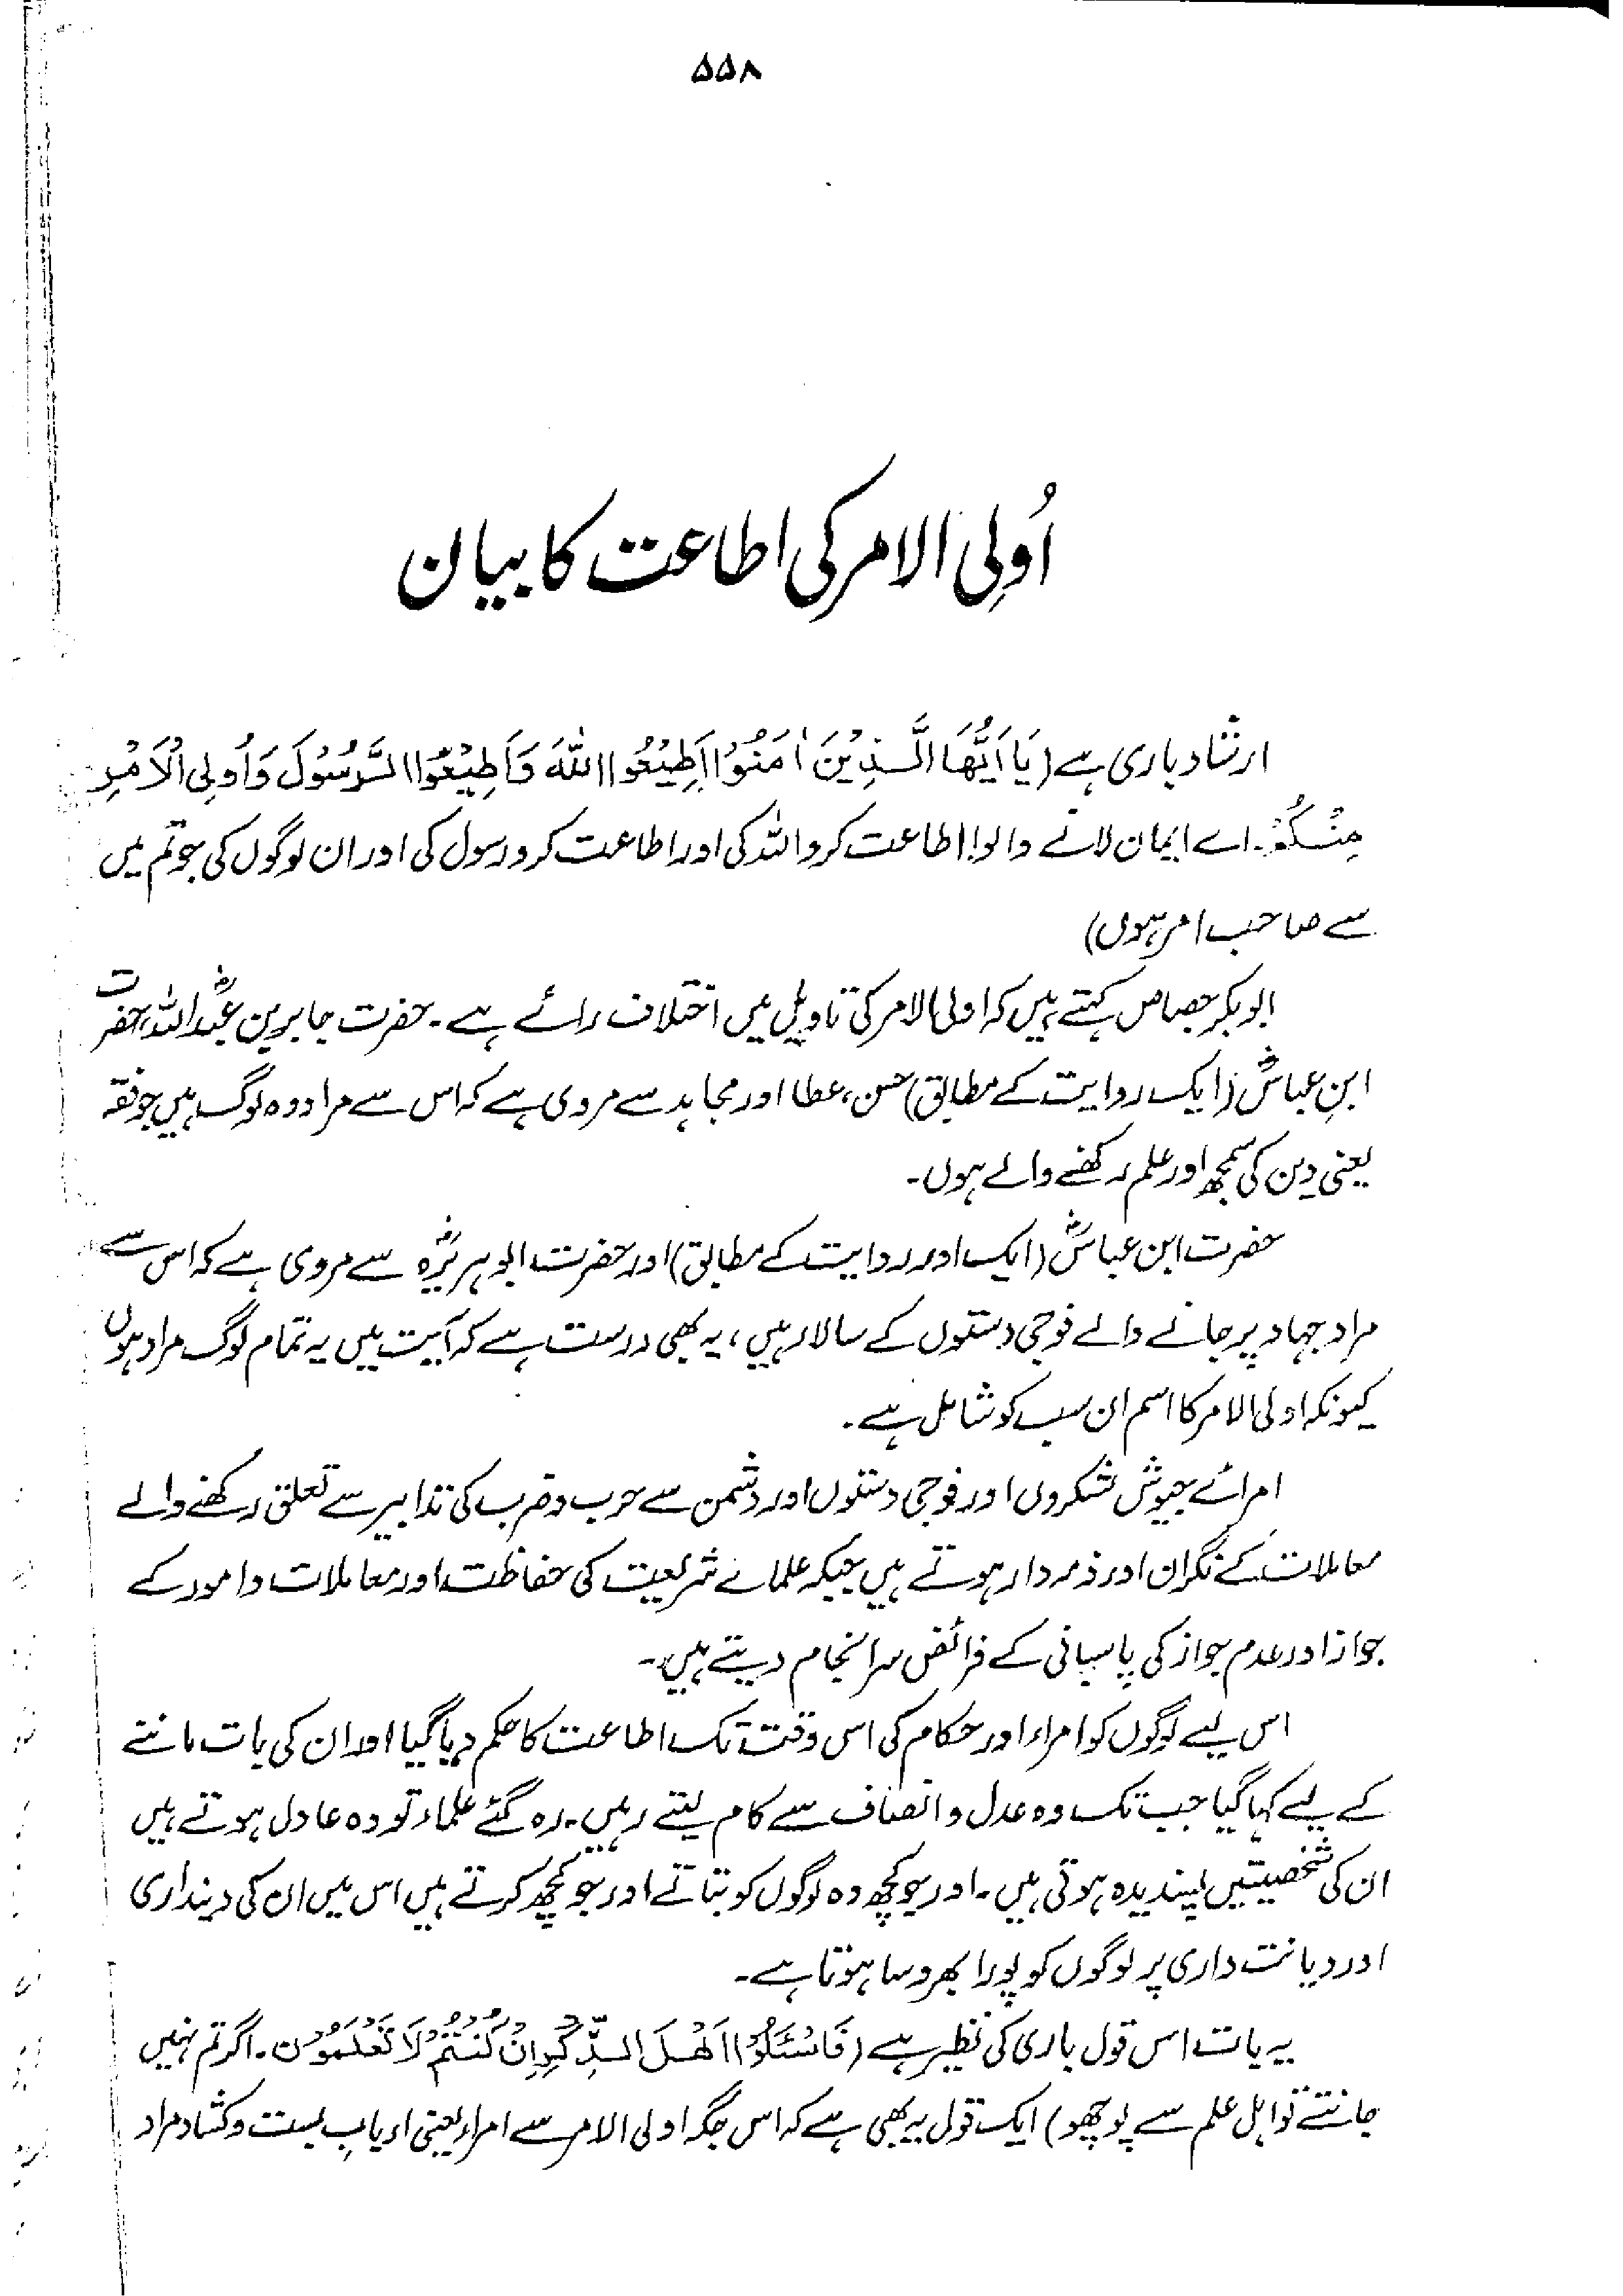 ۵۵۸
اُولِی الامر کی اطاعت کا بیان
ارشاد باری ہے (یَا اَیُّھَا الَّذِیْنَ اٰمَنُوْا اَطِیْعُوا اللّٰہَ وَاَطِیْعُوا الرَّسُوْلَ وَاُولِی الْاَمْرِ
مِنْکُمْ۔ اے ایمان لانے والو! اطاعت کرو اللہ کی اور اطاعت کرو رسول کی اور ان لوگوں کی جو تم میں
سے صاحب امر ہوں)
ابوبکر جصاص کہتے ہیں کہ اولی الامر کی تاویل میں اختلاف رائے ہے۔ حضرت جابر بن عبداللہؓ، حضرت
ابنِ عباسؓ (ایک روایت کے مطابق) حسن، عطا اور مجاہد سے مروی ہے کہ اس سے مراد وہ لوگ ہیں جو فقہ
یعنی دین کی سمجھ اور علم رکھنے والے ہوں۔
حضرت ابن عباسؓ (ایک اور روایت کے مطابق) اور حضرت ابوہریرہؓ سے مروی ہے کہ اس سے
مراد جہاد پر جانے والے فوجی دستوں کے سالار ہیں، یہ بھی درست ہے کہ آیت میں یہ تمام لوگ مراد ہوں
کیونکہ اولی الامر کا اسم ان سب کو شامل ہے۔
امرائے جیوش لشکروں اور فوجی دستوں اور دشمن سے حرب و ضرب کی تدابیر سے تعلق رکھنے والے
معاملات کے نگران اور ذمہ دار ہوتے ہیں جبکہ علمائے شریعت کی حفاظت اور معاملات و امور کے
جواز اور عدم جواز کی پاسبانی کے فرائض سرانجام دیتے ہیں۔
اس لیے لوگوں کو امراء اور حکام کی اس وقت تک اطاعت کا حکم دیا گیا اور ان کی بات ماننے
کے لیے کہا گیا جب تک وہ عدل و انصاف سے کام لیتے رہیں۔ رہ گئے علماء تو وہ عادل ہوتے ہیں
ان کی شخصیتیں پسندیدہ ہوتی ہیں۔ اور جو کچھ وہ لوگوں کو بتاتے اور جو کچھ کرتے ہیں اس میں ان کی دینداری
اور دیانت داری پر لوگوں کو پورا بھروسا ہوتا ہے۔
یہ بات اس قول باری کی نظیر ہے (فَاسْئَلُوْا اَھْلَ الذِّکْرِ اِنْ کُنْتُمْ لَا تَعْلَمُوْن۔ اگر تم نہیں
جانتے تو اہل علم سے پوچھو) ایک قول یہ بھی ہے کہ اس جگہ اولی الامر سے امراء یعنی اربابِ بست و کشاد مراد